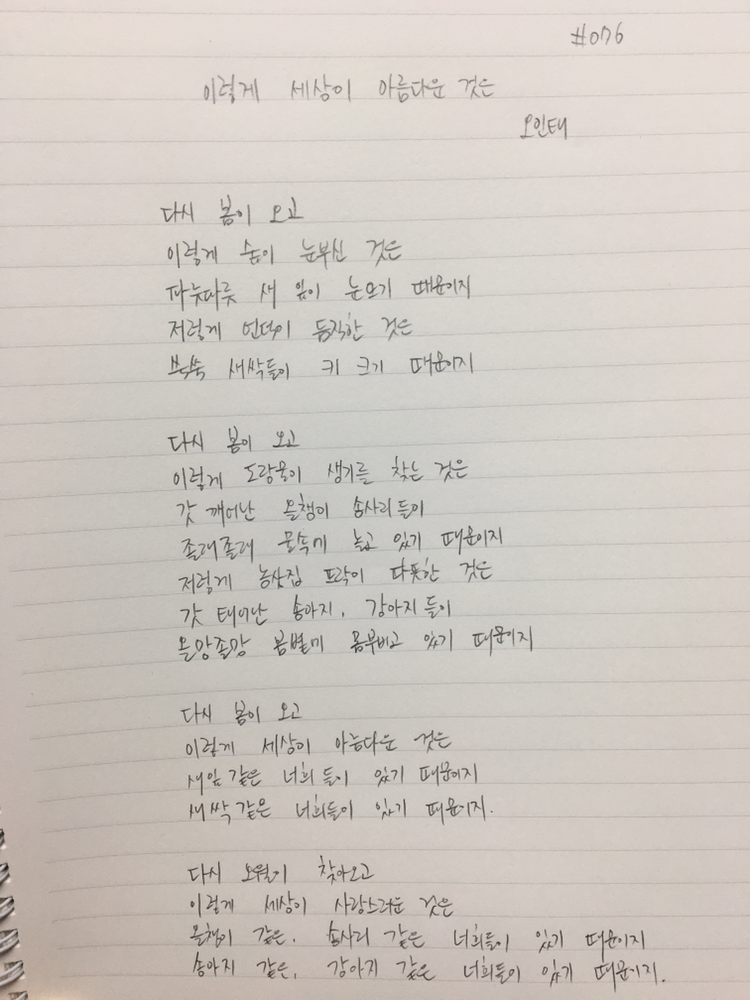 #076
이렇게 세상이 아름다운 것은
오인태
다시 봄이 오고
이렇게 숲이 눈부신 것은
파릇파릇 새 잎이 눈뜨기 때문이지
저렇게 언덕이 듬직한 것은
쑥쑥 새싹들이 키 크기 때문이지
다시 봄이 오고
이렇게 도랑물이 생기를 찾는 것은
갓 깨어난 올챙이 송사리들이
졸래졸래 물속에 놀고 있기 때문이지
저렇게 농삿집 뜨락이 따뜻한 것은
갓 태어난 송아지, 강아지들이
올망졸망 봄볕에 몸부비고 있기 때문이지
다시 봄이 오고
이렇게 세상이 아름다운 것은
새잎 같은 너희들이 있기 때문이지
새싹 같은 너희들이 있기 때문이지.
다시 오월이 찾아오고
이렇게 세상이 사랑스러운 것은
올챙이 같은, 송사리 같은 너희들이 있기 때문이지
송아지 같은, 강아지 같은 너희들이 있기 때문이지.